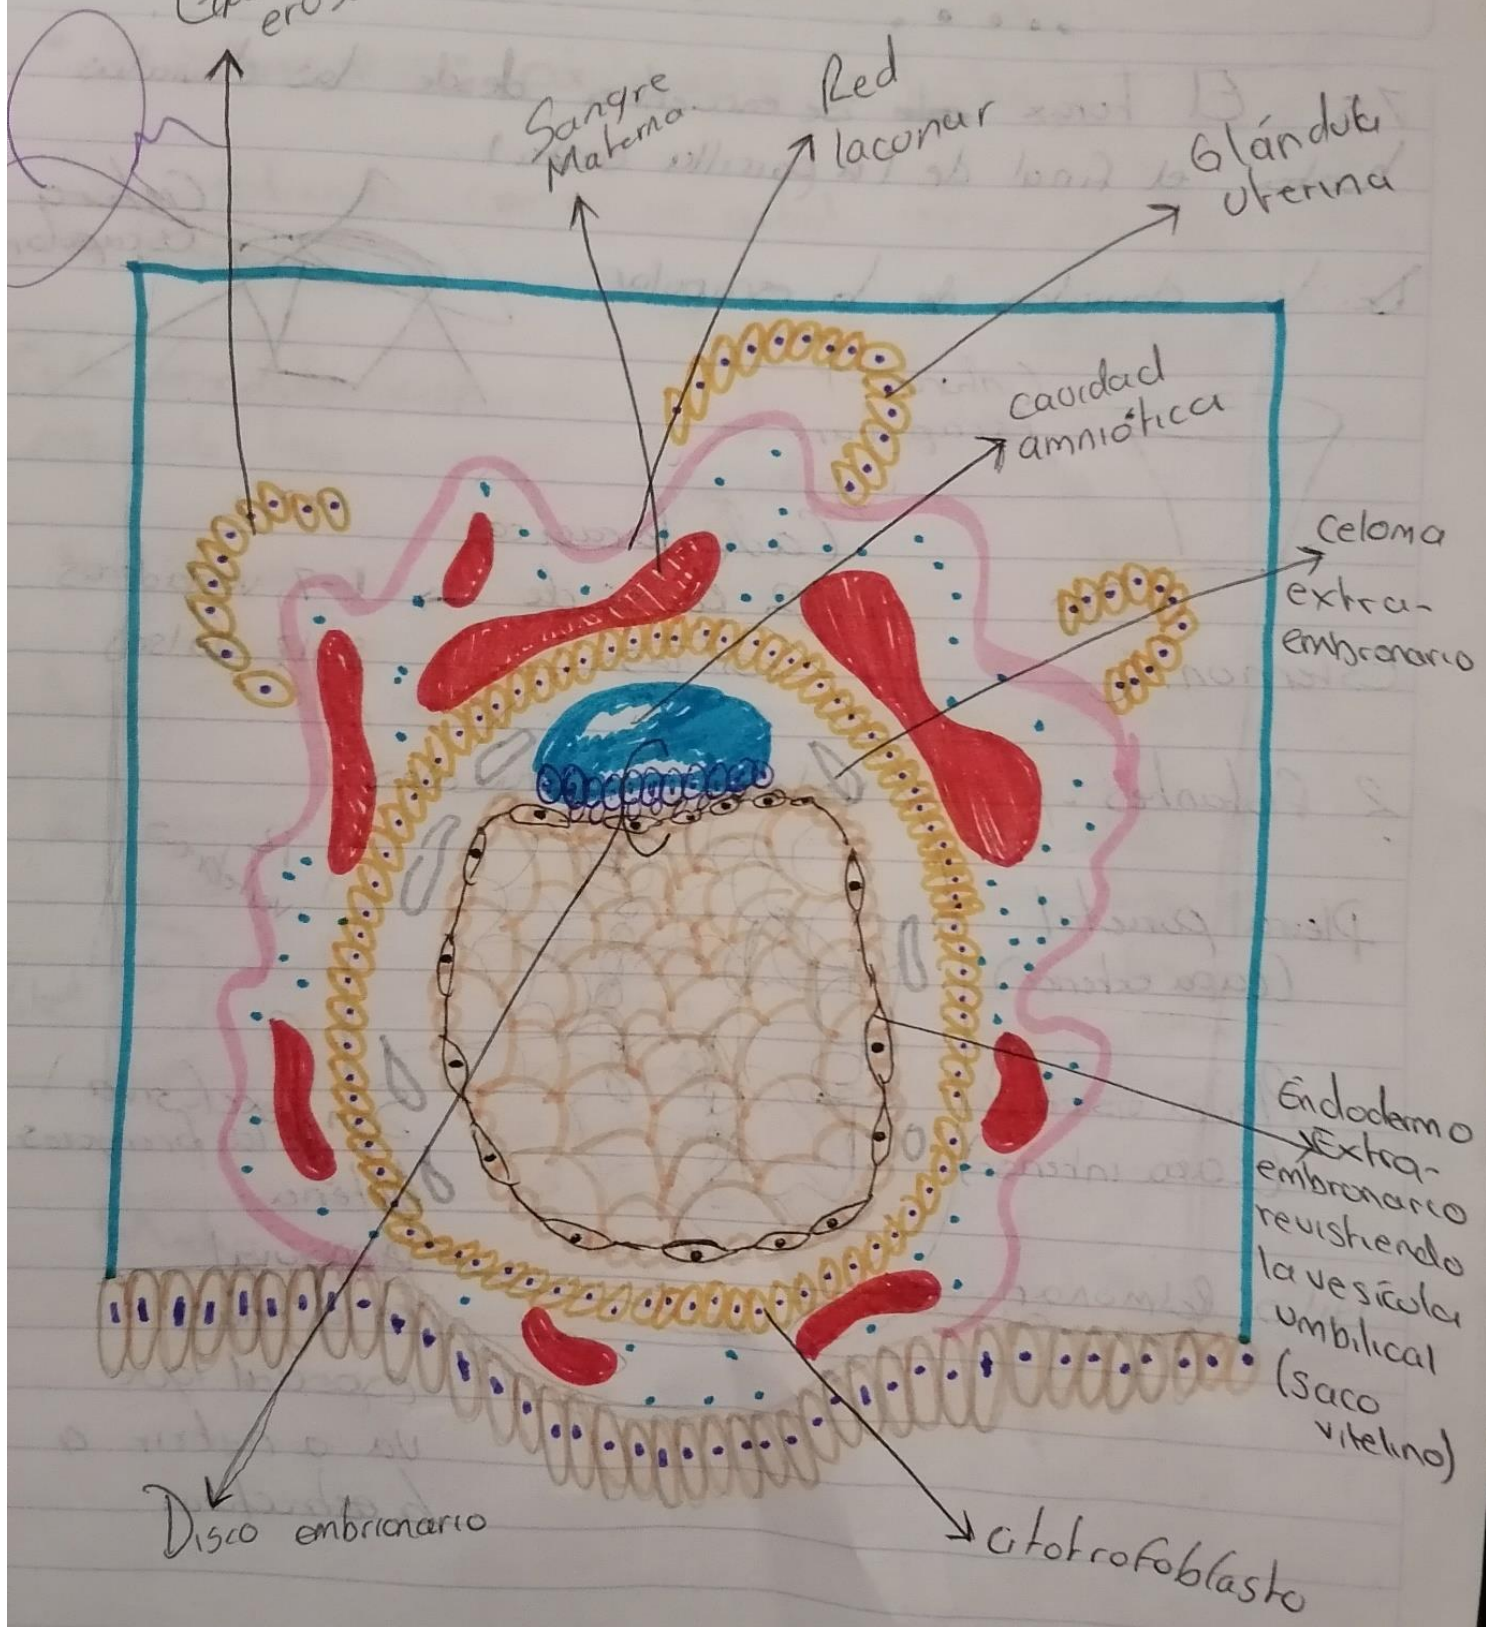 Sangre
Materna
Red
laconar
Glándula
Uterina
cavidad
amniótica
Celoma
extra-
embrionario
Endodermo
Extra-
embrionario
revistiendo
la vesícula
umbilical
(saco
vitelino)
Disco embrionario
citotrofoblasto